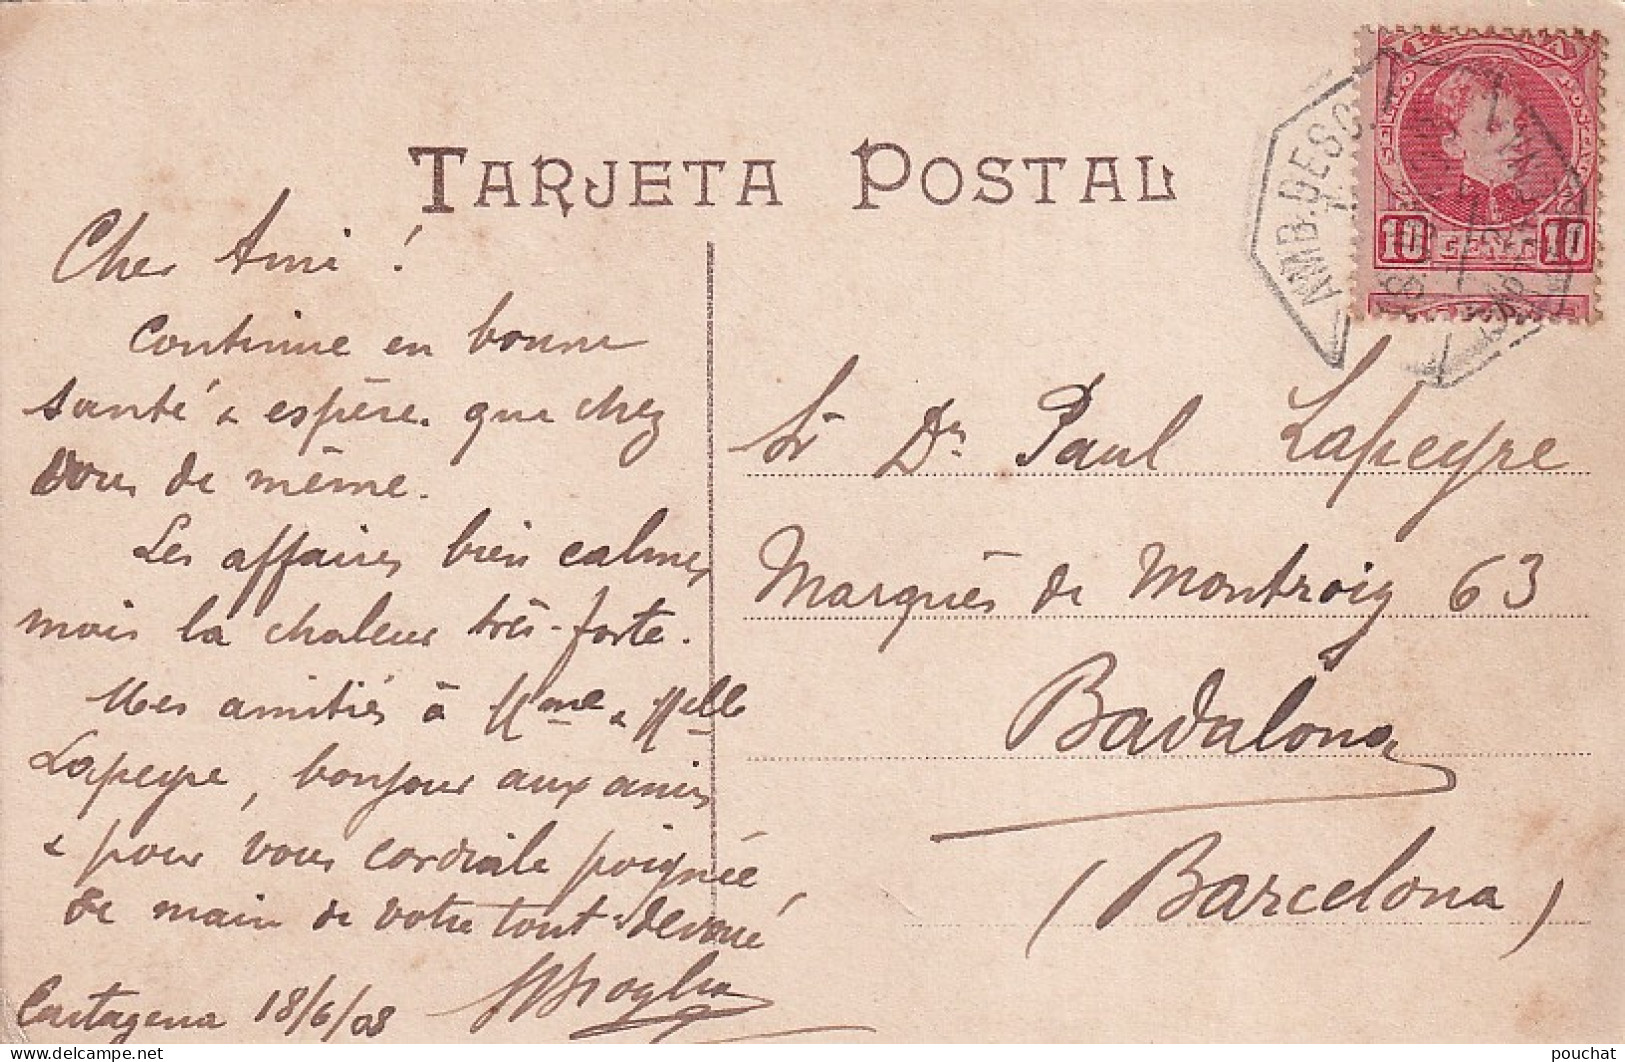 TARJETA POSTAL
Cher Ami !
Continue en bonne
santé & espère que chez
vous de même.
Les affaires bien calmes
mais la chaleur très-forte.
Mes amitiés à Mme & Melle
Lapeyre, bonjour aux amis
& pour vous cordiale poignée
de main de votre tout dévoué
Cartagena 18/6/08
Sr Dn Paul Lapeyre
Marqués de Montroig 63
Badalona
(Barcelona)
AMB. DESC.
10 CENS 10
pouchat